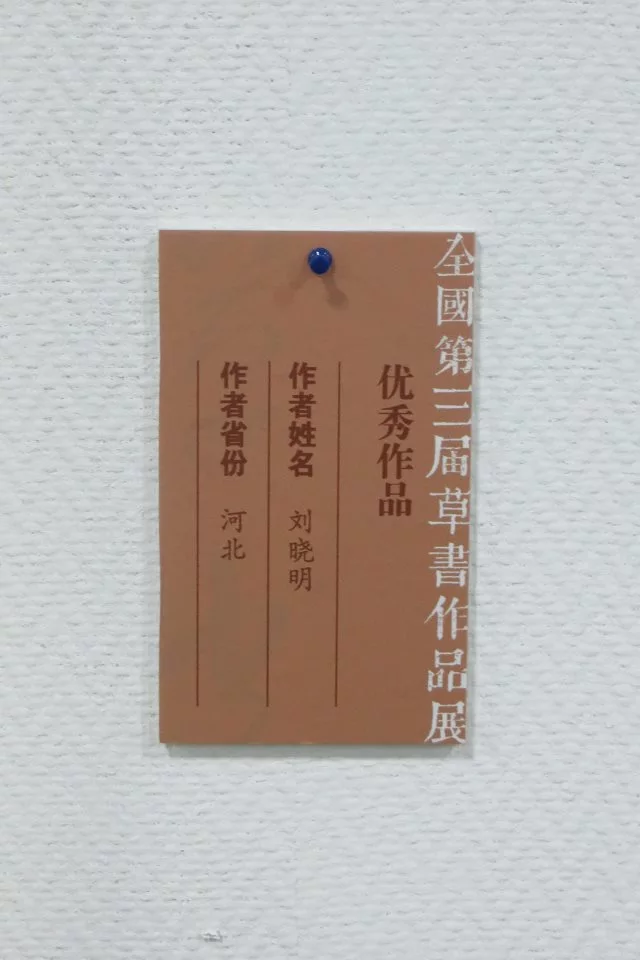 全國第三届草書作品展
优秀作品
作者姓名 刘晓明
作者省份 河北